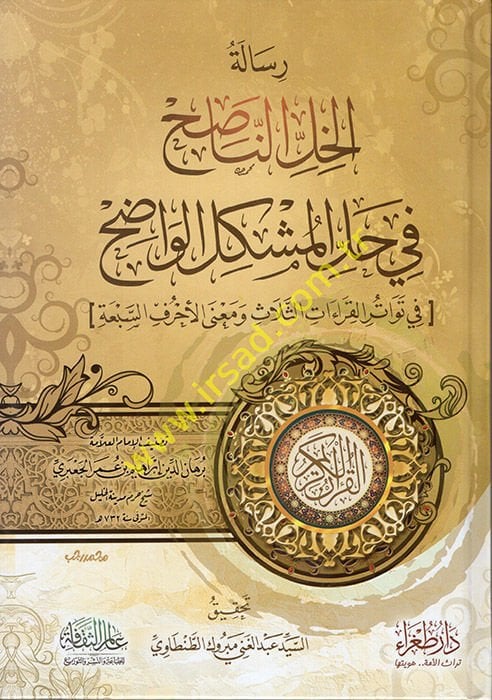 رِسَالَةُ
الخِلِّ النَّاصِحِ
فِي حَلِّ المُشْكِلِ الوَاضِحِ
[ فِي تَوَاتُرِ القِرَاءَاتِ الثَّلَاثِ وَمَعْنَى الأَحْرُفِ السَّبْعَةِ ]
الإمام العلامة
برهان الدين إبراهيم بن عمر الجعبري
شيخ حرم مدينة الخليل
المتوفى سنة ٧٣٢ هـ
القرآن الكريم
www.irsad.com.tr
تحقيق
السيد عبد الغني مبروك الطنطاوي
دار طغراء
تراث الأمة.. هويتها
عالم الثقافة
للطباعة والنشر والتوزيع